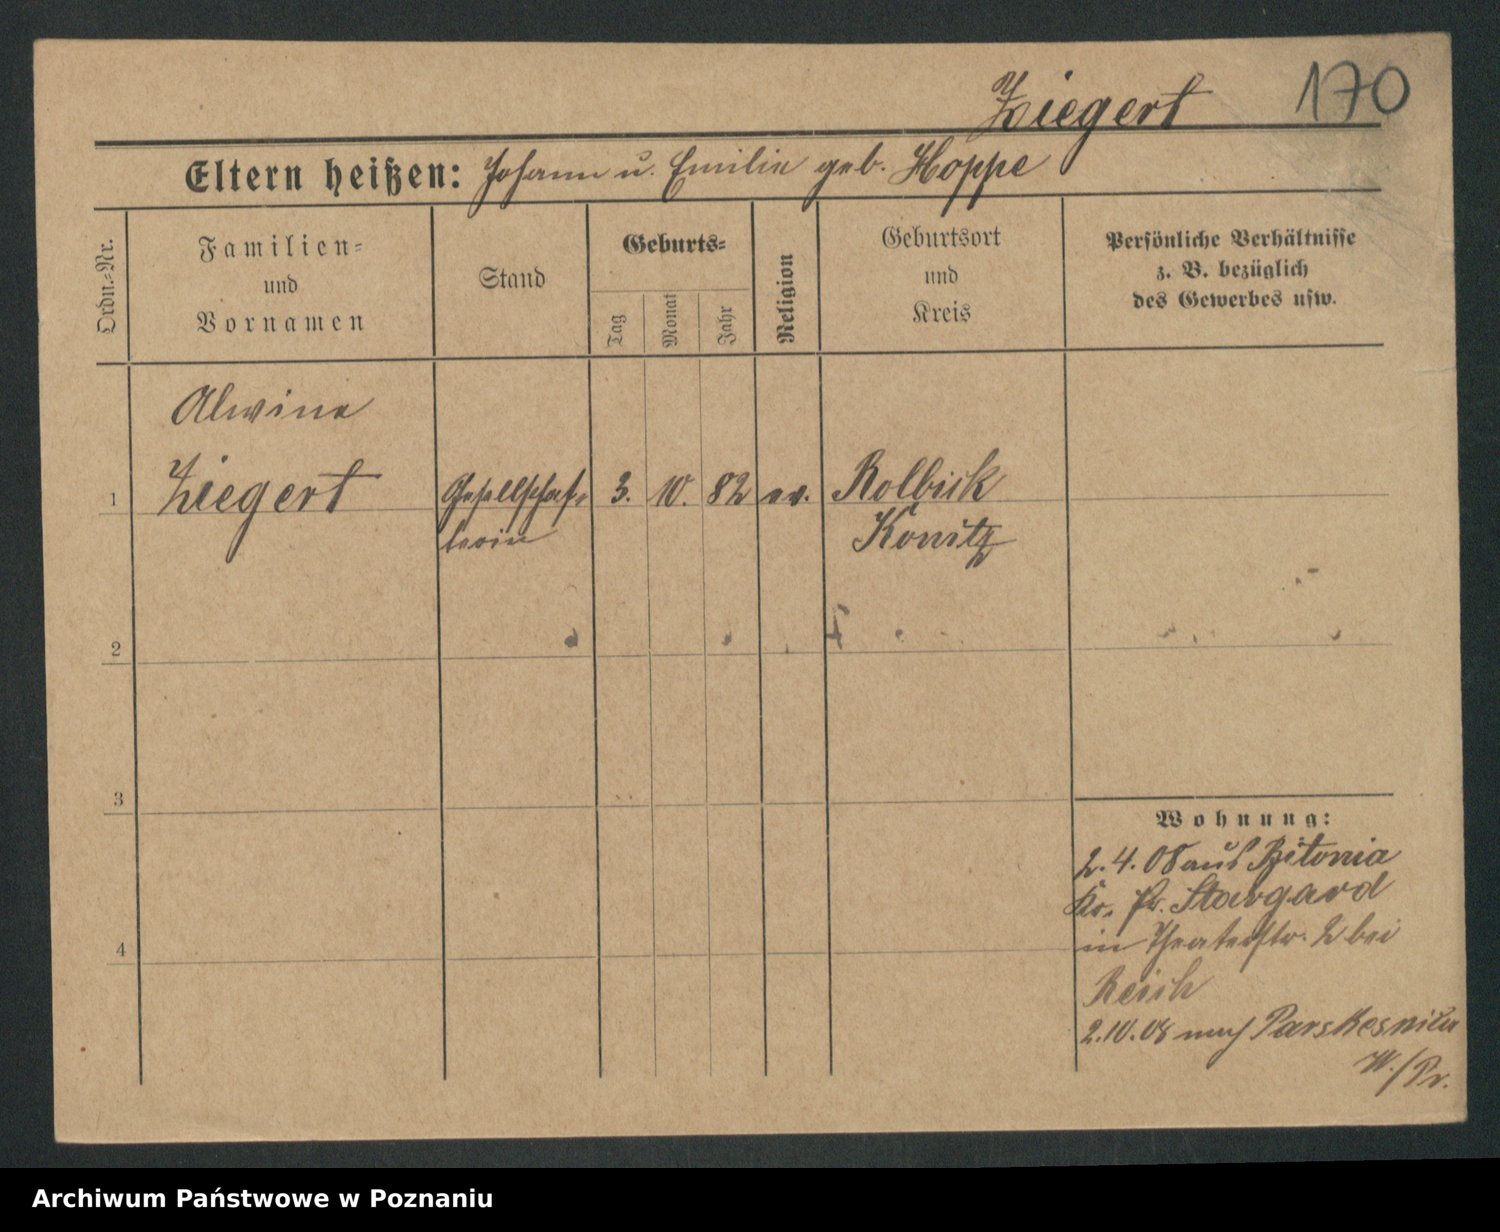 Ziegert 170
Eltern heißen: Johann u. Emilie geb. Hoppe
Ordn.=Nr.
Familien=
und
Vornamen
Stand
Geburts=
Tag
Monat
Jahr
Religion
Geburtsort
und
Kreis
Persönliche Verhältnisse
z. B. bezüglich
des Gewerbes usw.
Alwine
1 Ziegert Gesellschaf= 3. 10. 82 ev. Rolbik
terin Konitz
2
3
Wohnung:
2. 4. 08 aus Bitonia
Kr. Pr. Stargard
in Theaterstr. 2 bei
4
Reich
2.10.08 nach
W./Pr.
Archiwum Państwowe w Poznaniu